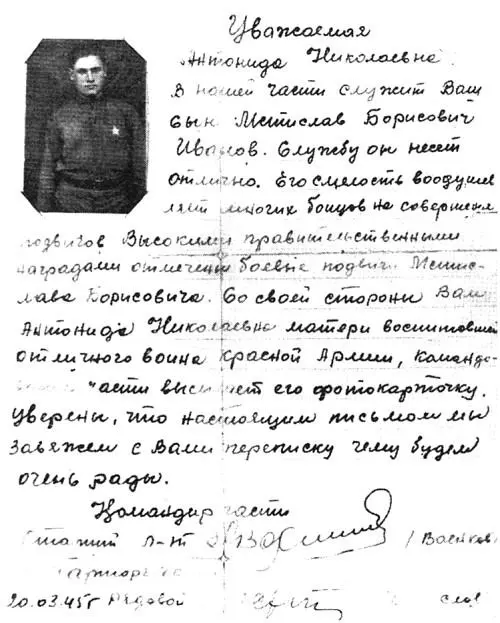 Уважаемая
Антонида Николаевна
В нашей части служит Ваш
сын Мстислав Борисович
Иванов. Службу он несет
отлично. Его смелость воодушев
ляет многих бойцов на совершение
подвигов Высокими правительственными
наградами отмечены боевые подвиги Мстис-
лава Борисовича. Со своей стороны Вам
Антонида Николаевна матери воспитавшей
отличного воина Красной Армии, командо-
части высылает его фотокарточку.
Уверены, что настоящим письмом мы
Завяжем с Вами переписку чему будем
очень рады.
Командир части
Старший л-нт
20.03.45г Рядовой